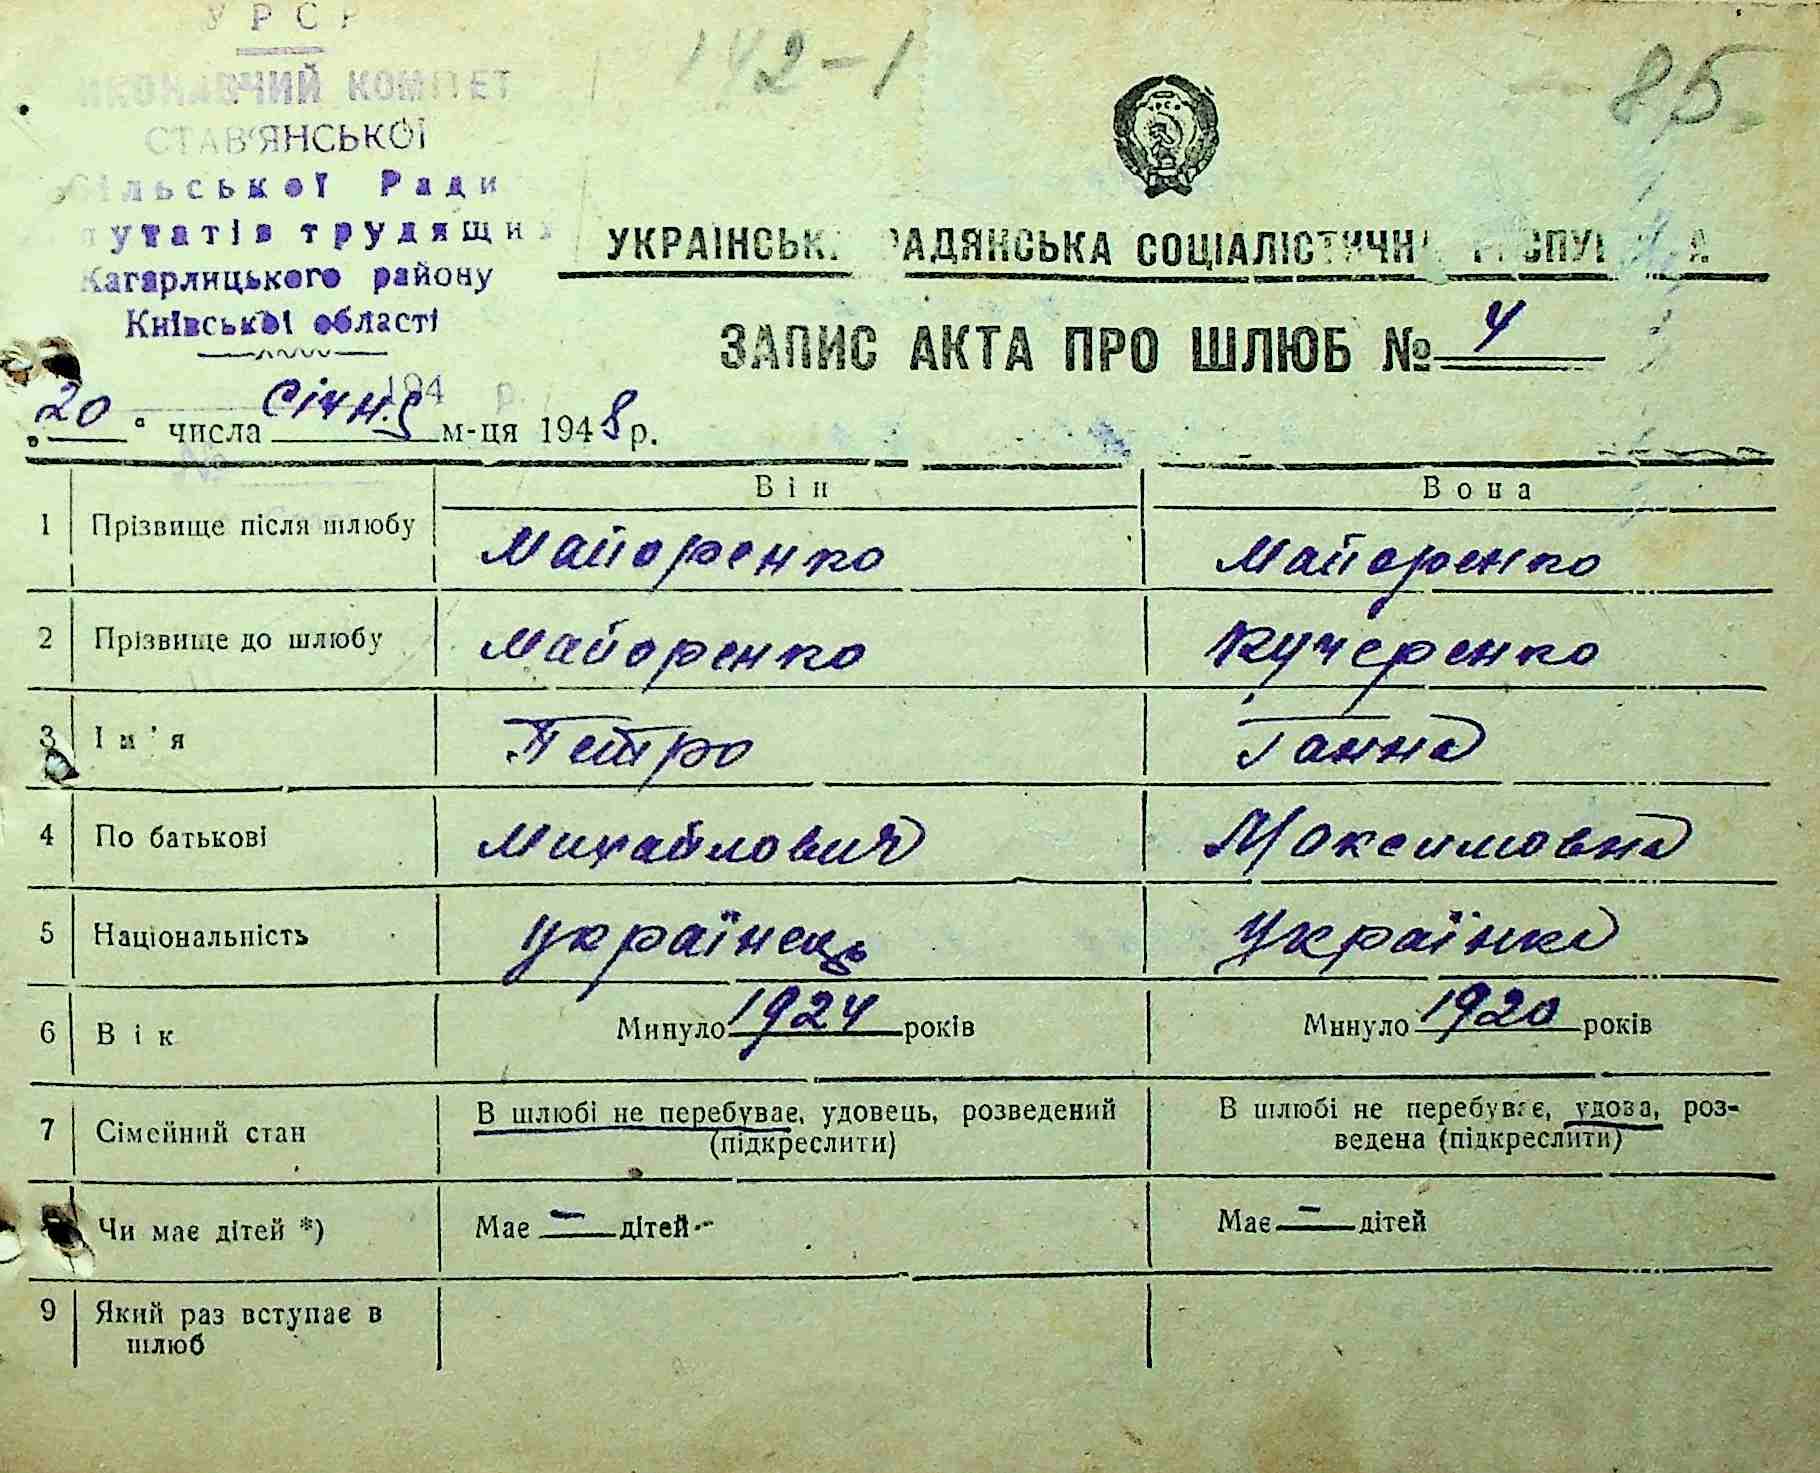 УРСР
ВИКОНАВЧИЙ КОМІТЕТ
СТАВ'ЯНСЬКОЇ
Сільської Ради
депутатів трудящих
Кагарлицького району
Київської області
194 р.
142-1
85
УКРАЇНСЬКА РАДЯНСЬКА СОЦІАЛІСТИЧНА РЕСПУБЛІКА
ЗАПИС АКТА ПРО ШЛЮБ № 4
„20“ числа січня м-ця 1948 р.
Він Вона
1 Прізвище після шлюбу Майоренко Майоренко
2 Прізвище до шлюбу Майоренко Кучеренко
3 Ім'я Петро Ганна
4 По батькові Михайлович Максимовна
5 Національність українець Українка
6 Вік Минуло 1924 років Минуло 1920 років
7 Сімейний стан В шлюбі не перебуває, удовець, розведений (підкреслити) В шлюбі не перебуває, удова, роз-
ведена (підкреслити)
Чи має дітей *) Має – дітей Має – дітей
9 Який раз вступає в
шлюб